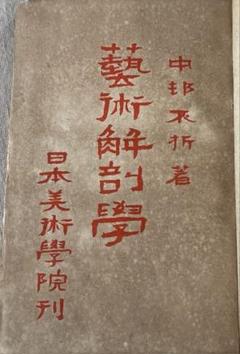 中邨不折著
藝術解剖學
日本美術學院刊